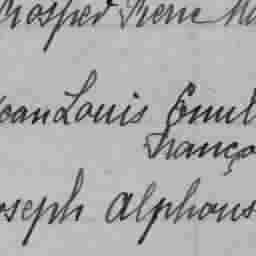 Prosper Pierre Ma
Jean Louis Emil
Franço
Joseph Alphons